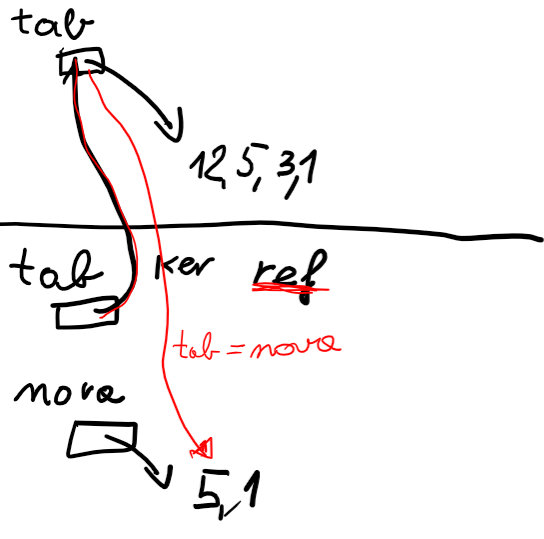 tab
12, 5, 3, 1
tab ker ref
tab = nova
nova
5, 1